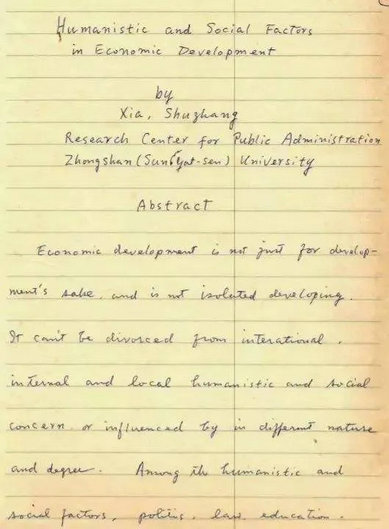 Humanistic and Social Factors
in Economic Development
by
Xia, Shuzhang
Research Center for Public Administration
Zhongshan (Sun Yat-sen) University
Abstract
Economic development is not just for develop-
ment's sake, and is not isolated developing.
It can't be divorced from interational,
internal and local humanistic and social
concern, or influenced by in different nature
and degree. Among the humanistic and
social factors, politis, law, education,